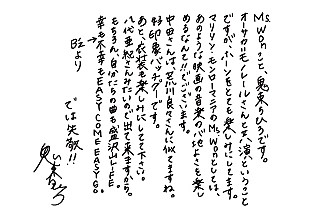 Ms.Wonこと、鬼束ちひろです。
オーサカ=モノレールさんと共演ということ
ですが、ホーンをとても楽しみにしてます。
マリリン・モンローマニアのMs.Wonとしては、
あのような映画の音楽の心地よさを楽し
めるなんてしびれてございます。
中田さんは、荒川良々さんに似てますね。
好印象バンチクーです。
あと、衣装も楽しみにしてて下さい。
八代亜紀さんみたいので出て来ますから。
もちろん、自分たちの曲も盛沢山LIFE。
幸も不幸もEASY COME EASY GO.
B'zより
では失敬!!
鬼束ちひろ